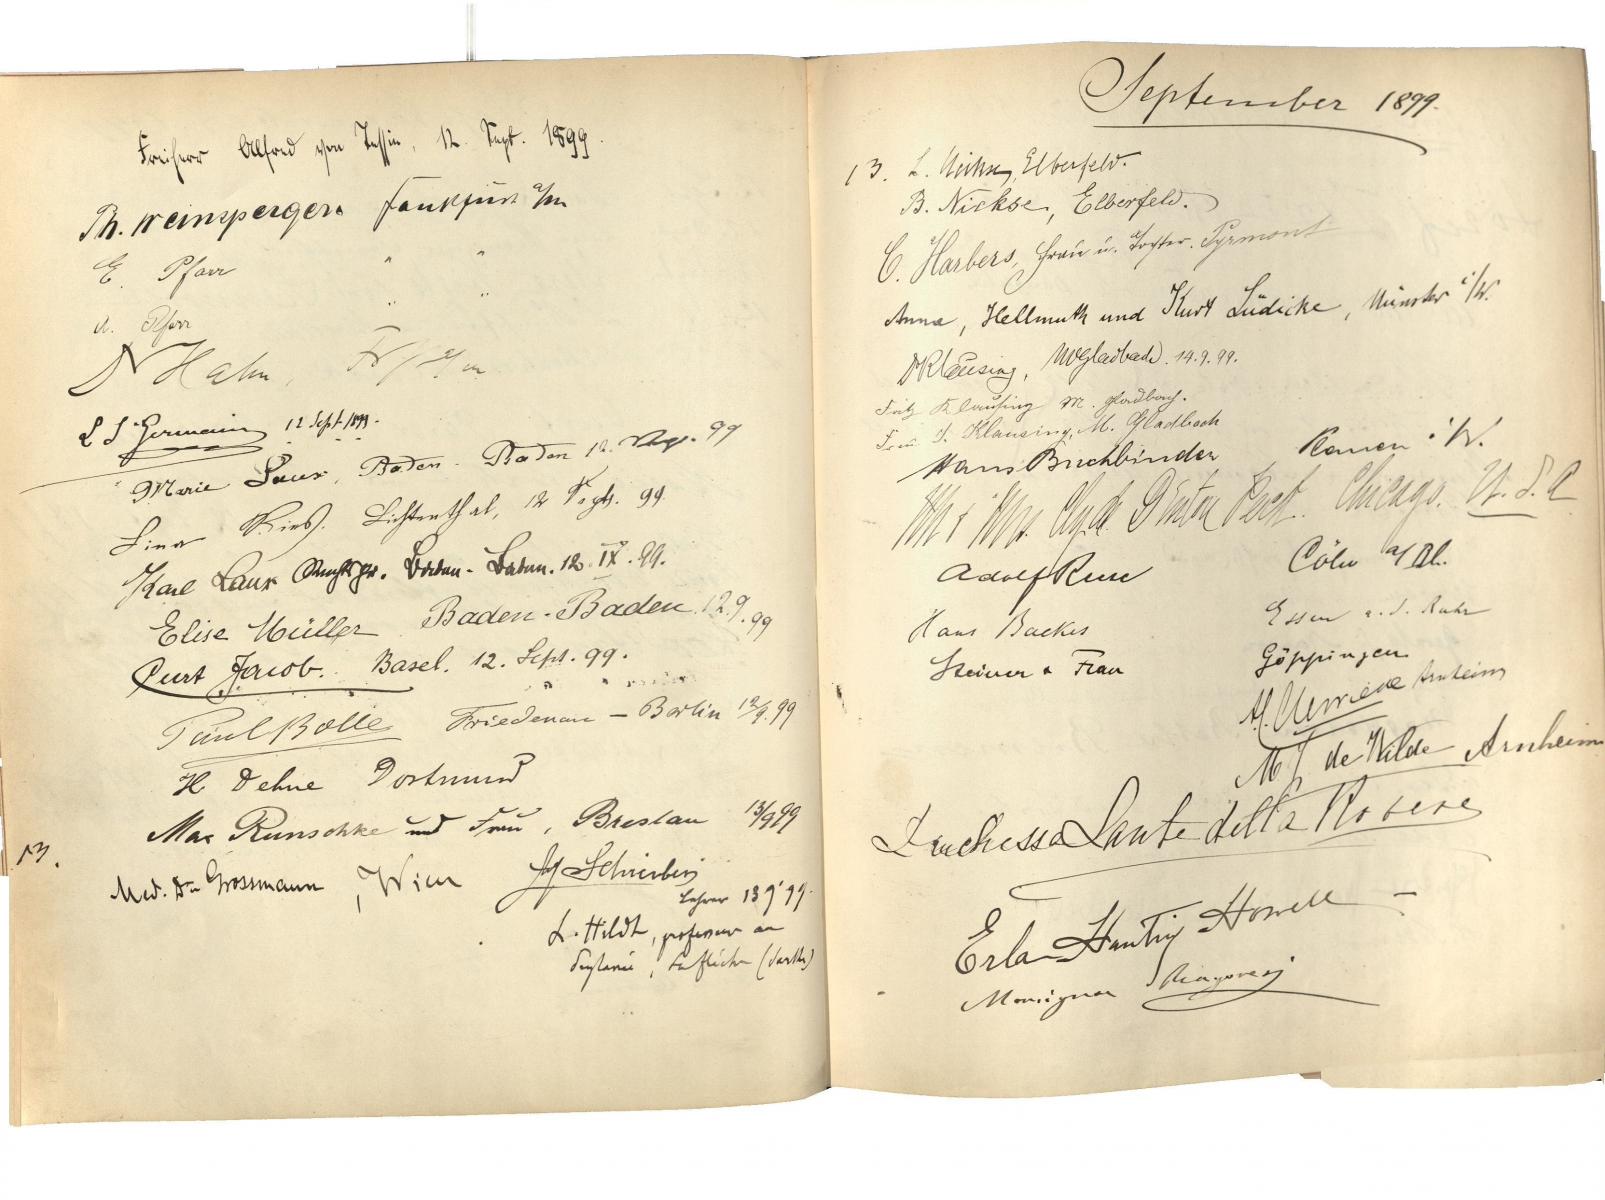 Freiherr Alfred von Tessin, 12. Sept. 1899.
Th. Weinsperger. Frankfurt a/m
E. Pfarr " "
A. Pfarr " "
Hahn, Fr/a/m
L S Germain 12 Sept. 1899.
Marie Laux, Baden-Baden 12. 99
Lina Ries. Lichtenthal, 12 Sept. 99
Karl Laux Baden-Baden. 12. IX. 99.
Elise Müller Baden-Baden. 12.9.99
Curt Jacob. Basel. 12. Sept. 99.
Paul Bolle Friedenau – Berlin 12/9.99
H Dehne Dortmund
Max Runschke und Frau, Breslau 13/9 99
13.
Med. Dr Grossmann, Wien
Lehrer 13 9 99.
L. Hildt, professeur au
September 1899.
13. L. Nickse, Elberfeld.
B. Nickse, Elberfeld.
C. Harbers, Frau u. Tochter. Pyrmont
Anna, Hellmuth und Kurt Lüdicke, Münster i/W.
Dr Klausing, MGladbach. 14.9.99.
Fritz Klausing M. Gladbach.
Frau J. Klausing, M. Gladbach
Hans Buchbinder Kamen i/W.
Mr & Mrs. Peck. Chicago. U.S.A
Adolf Cöln a/Rh.
Hans Backes Essen a.d. Ruhr
Steiner & Frau Göppingen
Arnheim
M J de Wilde Arnheim
Duchessa Lante della Rovere
Erla Howell
Monsignor